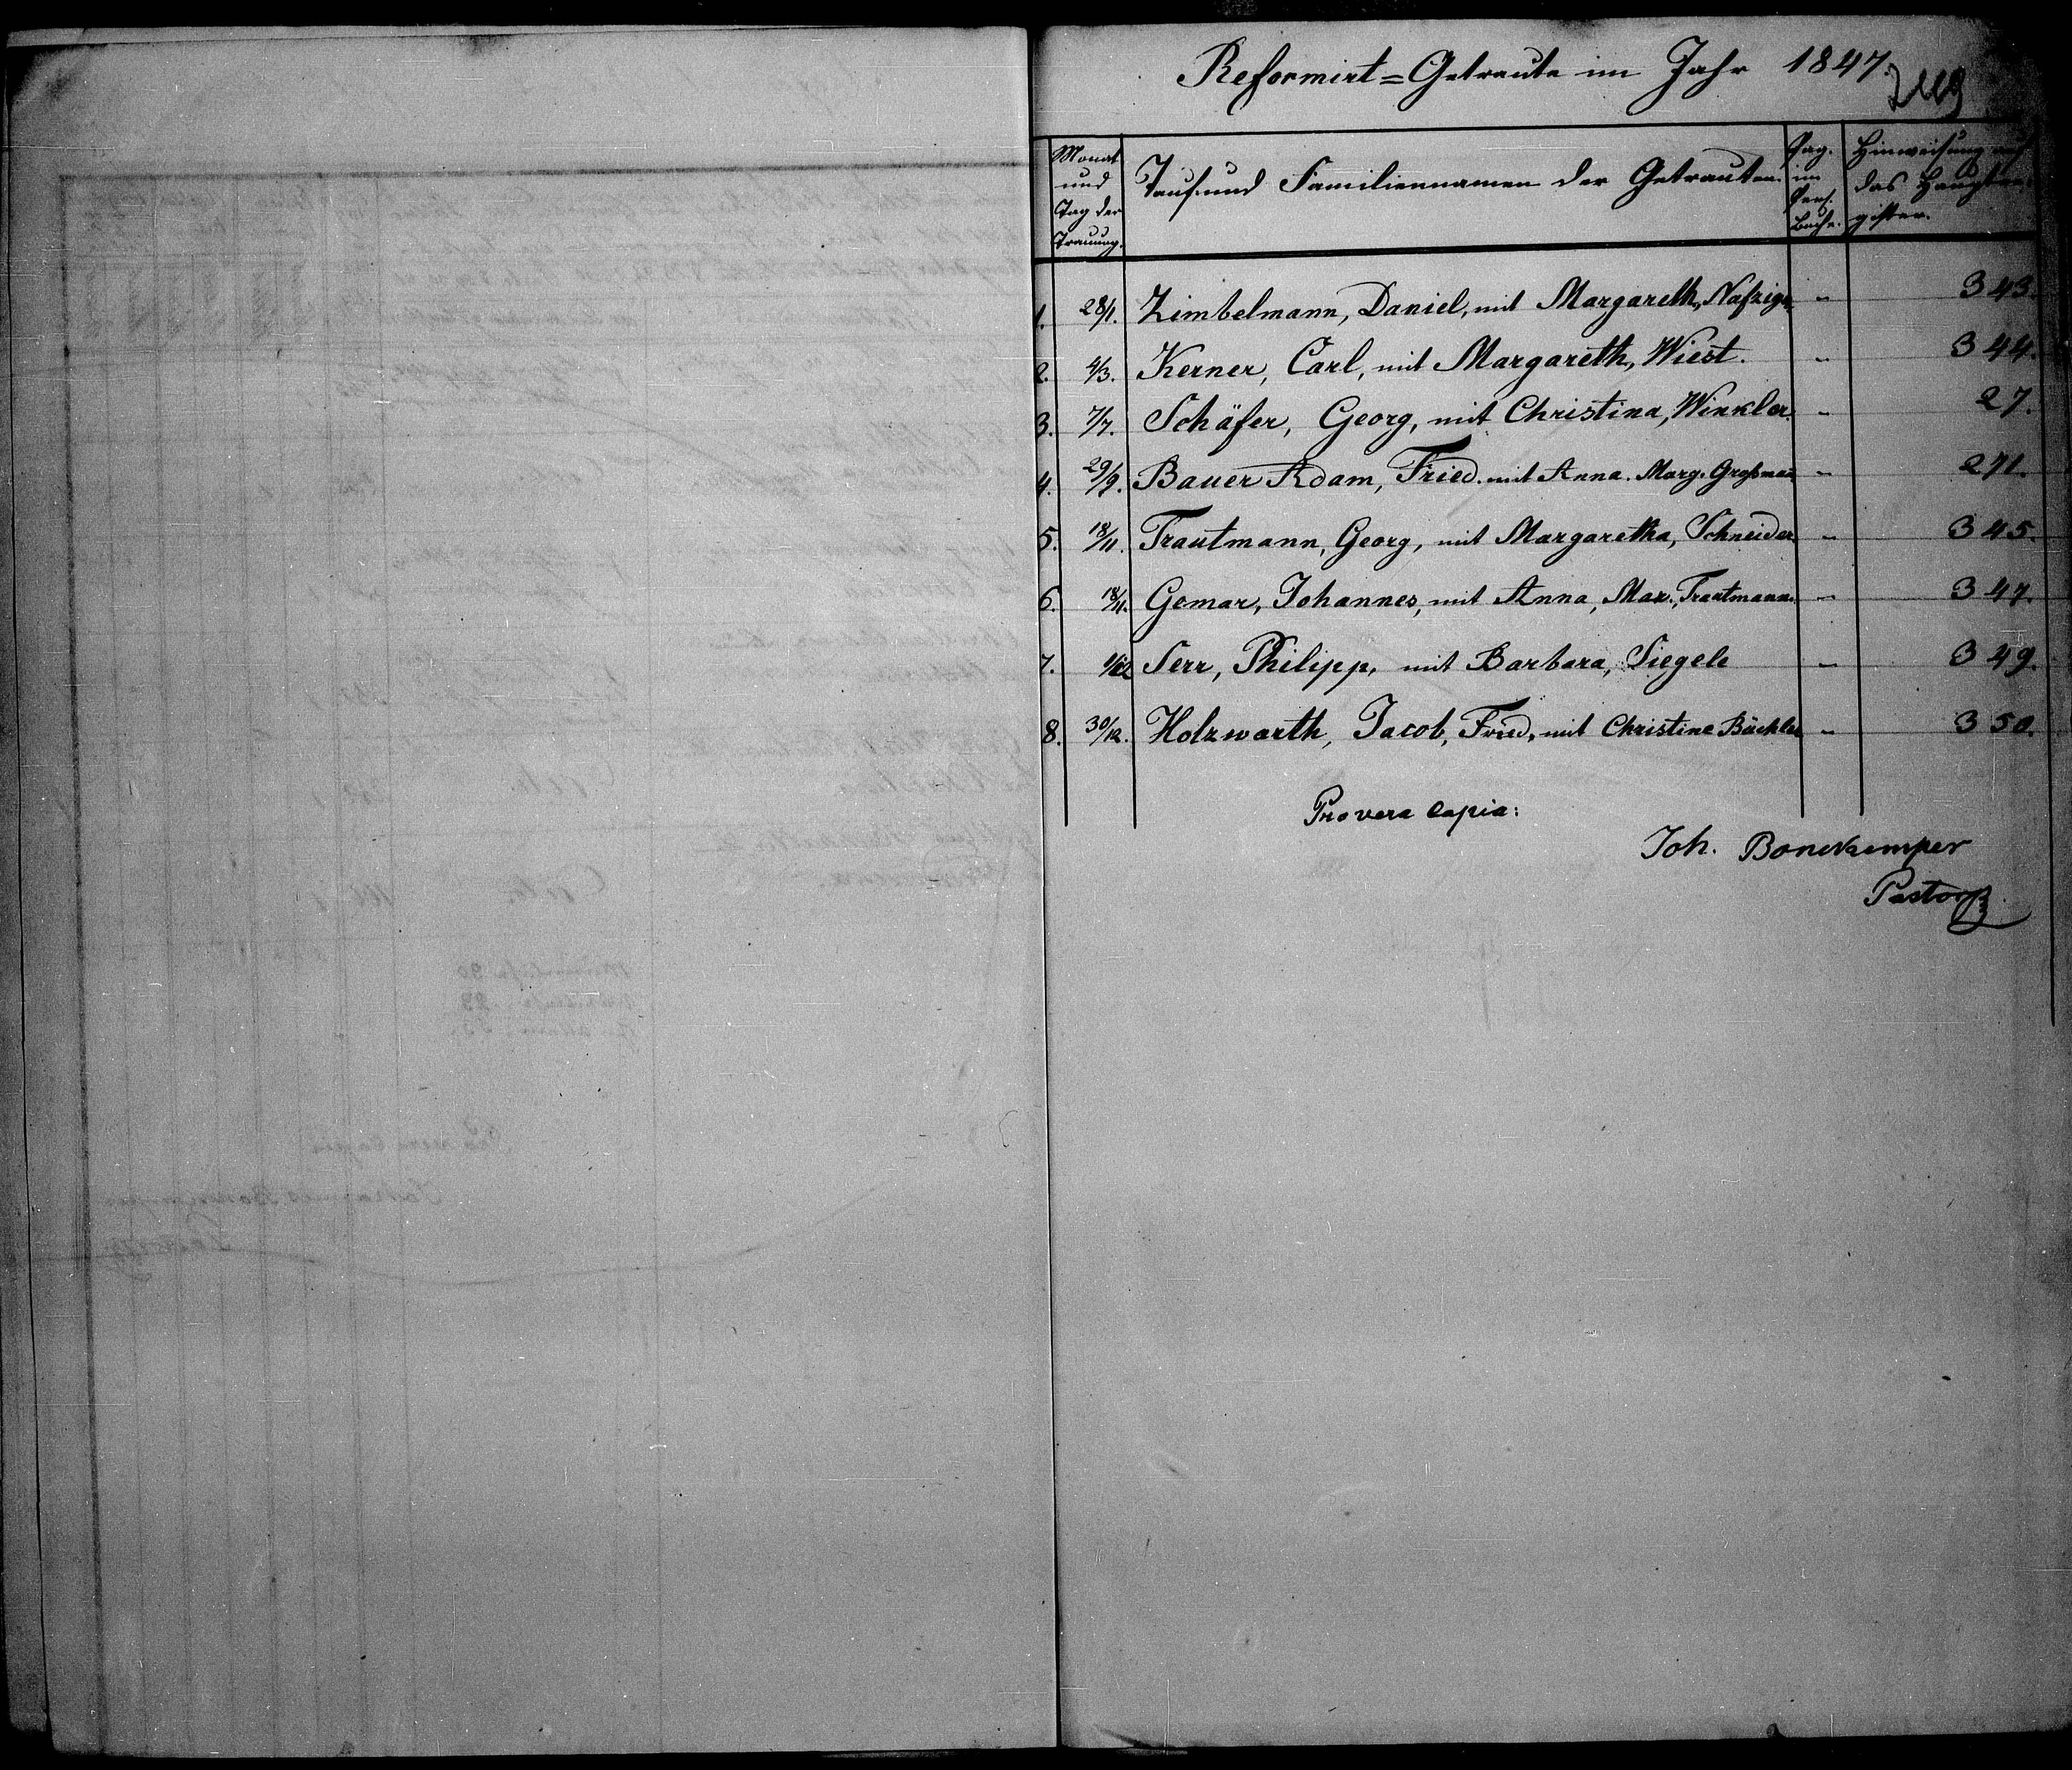 Reformirt=Getraute im Jahr 1847.
Monat und Tag der Trauung.
Tauf= und Familiennamen der Getrauten.
Pag. im Pers. Buche.
Hinweisung auf das Hauptregister.
1. 28/1. Zimbelmann, Daniel, mit Margareth, Nafzige " 343.
2. 4/3. Kerner, Carl, mit Margareth, Wiest. " 344.
3. 7/7. Schäfer, Georg, mit Christina, Winkler. " 27.
4. 29/9. Bauer Adam, Fried. mit Anna. Marg. Großman " 271.
5. 18/11. Trautmann, Georg, mit Margaretha, Schneider. " 345.
6. 18/11. Gemar, Johannes, mit Anna, Mar., Trautmann. " 347.
7. 1/12 Serr, Philipp, mit Barbara, Siegele " 349.
8. 30/12. Holzwarth, Jacob, Fried, mit Christine Bächler " 350.
Pro vera copia:
Joh. Bonekemper
Pastor